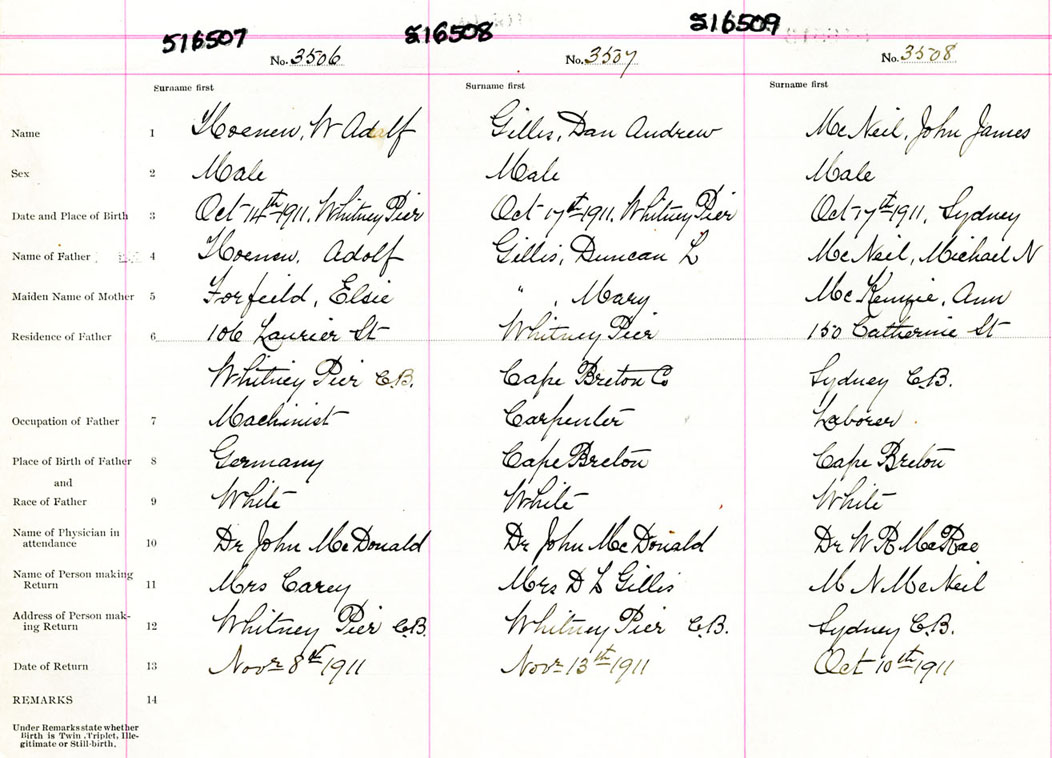 516507 516508 516509
No. 3506 No. 3507 No. 3508
Surname first Surname first Surname first
Name 1 Hoenen, W Adolf Gillis, Dan Andrew McNeil, John James
Sex 2 Male Male Male
Date and Place of Birth 3 Oct 14th 1911, Whitney Pier Oct 17th 1911, Whitney Pier Oct 17th 1911, Sydney
Name of Father 4 Hoenen, Adolf Gillis, Duncan L McNeil, Michael N
Maiden Name of Mother 5 Forfeild, Elsie " , Mary McKenzie, Ann
Residence of Father 6 106 Laurier St Whitney Pier 150 Catherine St
Whitney Pier C.B. Cape Breton Co Sydney C.B.
Occupation of Father 7 Machinist Carpenter Laborer
Place of Birth of Father 8 Germany Cape Breton Cape Breton
and
Race of Father 9 White White White
Name of Physician in
attendance 10 Dr John McDonald Dr John McDonald Dr W R McRae
Name of Person making
Return 11 Mrs Carey Mrs D L Gillis M N McNeil
Address of Person mak-
ing Return 12 Whitney Pier C.B. Whitney Pier C.B. Sydney C.B.
Date of Return 13 Novr 8th 1911 Novr 13th 1911 Oct 10th 1911
REMARKS 14
Under Remarks state whether
Birth is Twin, Triplet, Ille-
gitimate or Still-birth.